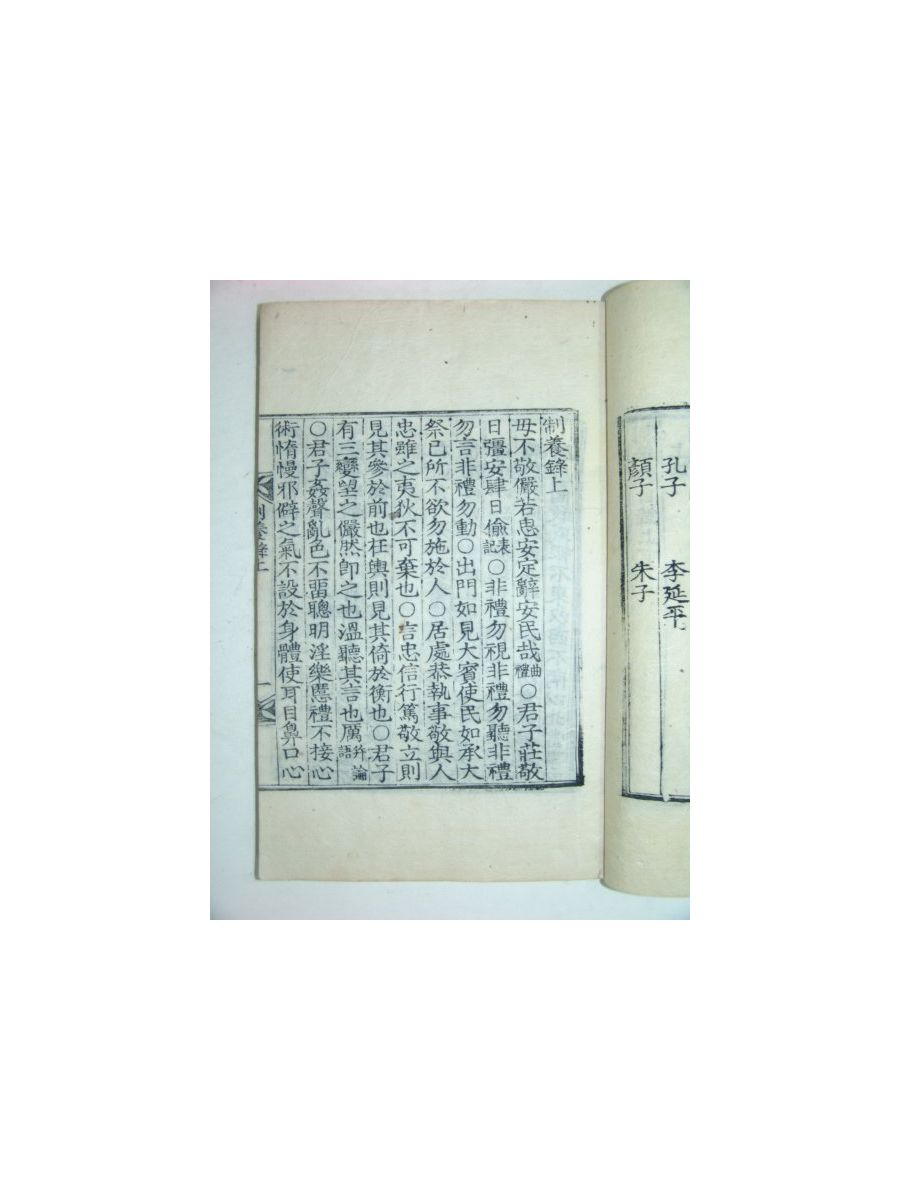 孔子 李延平
顔子 朱子
制養錄上
毋不敬儼若思安定辭安民哉曲禮○君子莊敬
日彊安肆日偸表記○非禮勿視非禮勿聽非禮
勿言非禮勿動○出門如見大賓使民如承大
祭己所不欲勿施於人○居處恭執事敬與人
忠雖之夷狄不可棄也○言忠信行篤敬立則
見其參於前也在輿則見其倚於衡也○君子
有三變望之儼然卽之也溫聽其言也厲并論語
○君子姦聲亂色不畱聰明淫樂慝禮不接心
術惰慢邪僻之氣不設於身體使耳目鼻口心
制養錄上 一